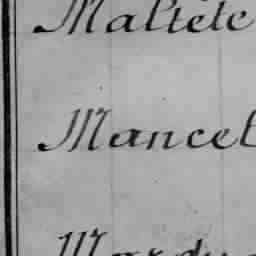 Maltête
Mancel